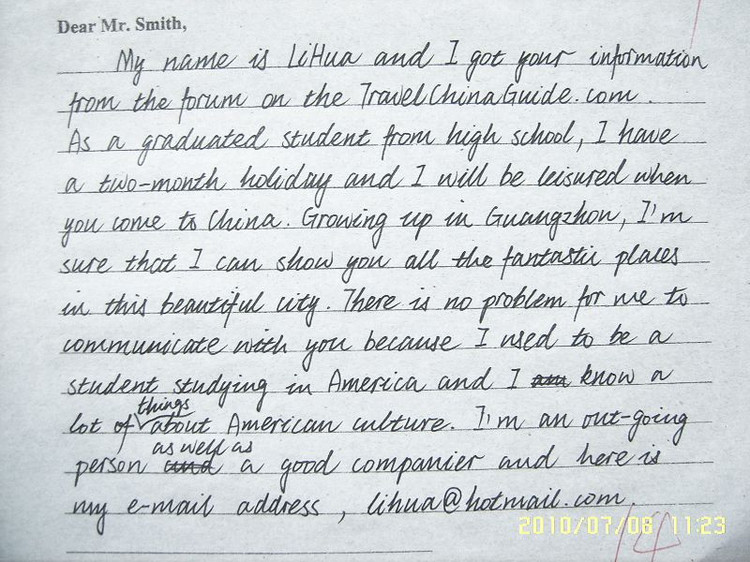 Dear Mr. Smith,
My name is LiHua and I got your information
from the forum on the TravelChinaGuide.com.
As a graduated student from high school, I have
a two-month holiday and I will be leisured when
you come to China. Growing up in Guangzhou, I'm
sure that I can show you all the fantastic places
in this beautiful city. There is no problem for me to
communicate with you because I used to be a
student studying in America and I am know a
things
lot of about American culture. I'm an out-going
as well as
person and a good companier and here is
my e-mail address, lihua@hotmail.com.
2010/07/08 11:23
14